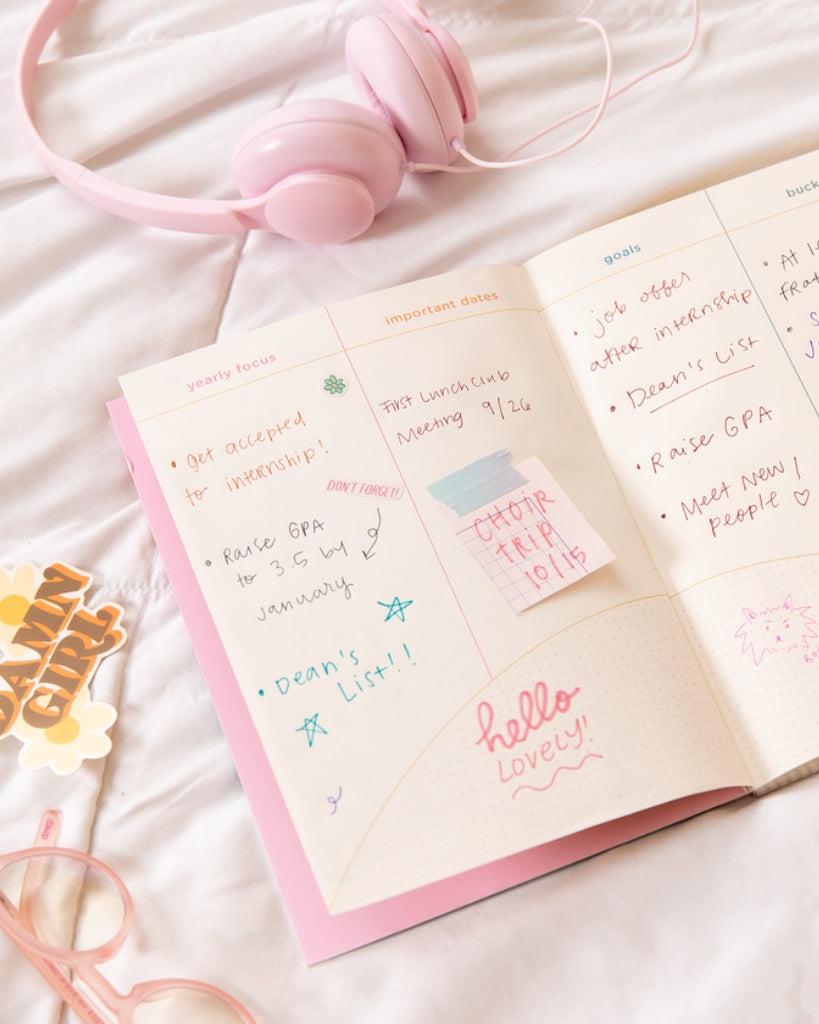 yearly focus
• get accepted
to internship!
DON'T FORGET!
• Raise GPA
to 3.5 by
January
• Dean's
List!!
important dates
First Lunch Club
Meeting 9/26
CHOIR
TRIP
10/15
hello
LOVELY!
goals
• job offer
after internship
• Dean's List
• Raise GPA
• Meet New
people ♡
• At
DAMN
GIRL